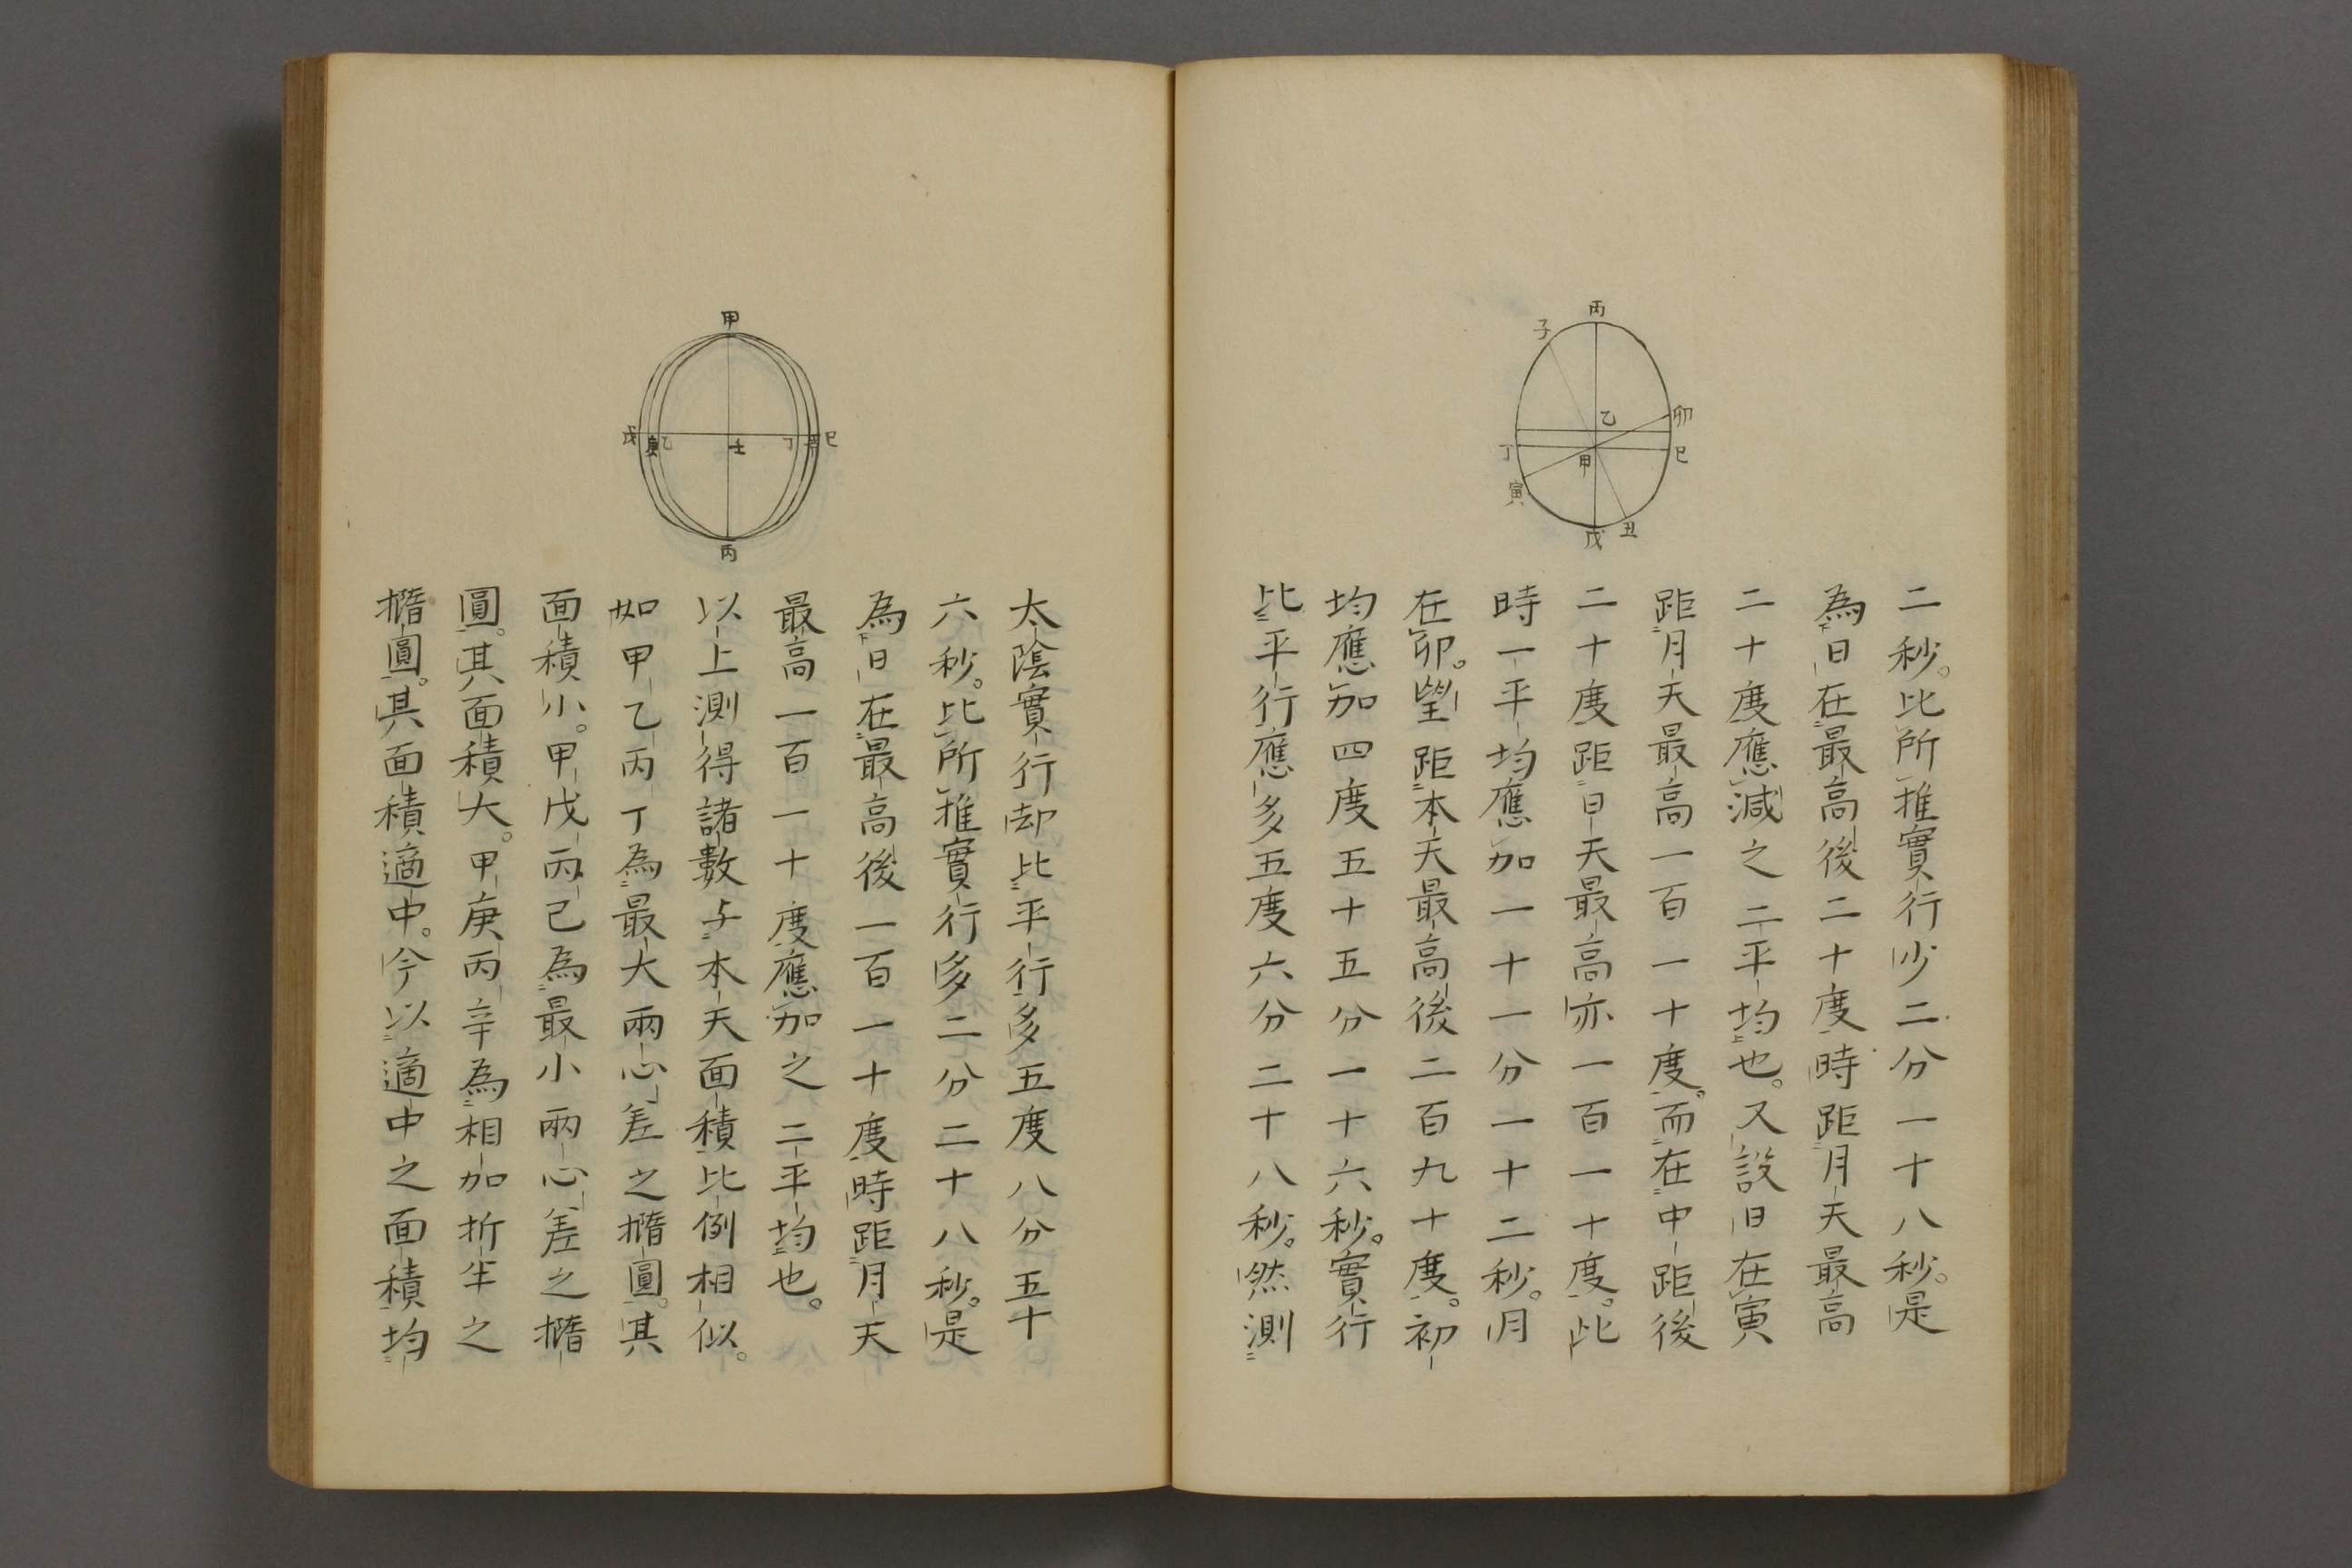 丙
子
乙
卯
丁
甲
巳
寅
戊
丑
二秒。比所推實行少二分一十八秒。是
為日在最高後二十度時距月天最高
二十度應減之二平均也。又設日在寅
距月天最高一百一十度。而在中距後
二十度距日天最高亦一百一十度。此
時一平均應加一十一分一十二秒。月
在卯。望距本天最高後二百九十度。初
均應加四度五十五分一十六秒。實行
比平行應多五度六分二十八秒。然測
甲
戊
庚
乙
壬
丁
辛
巳
丙
太陰實行却比平行多五度八分五十
六秒。比所推實行多二分二十八秒。是
為日在最高後一百一十度時距月天
最高一百一十度應加之二平均也。
以上測得諸數与本天面積比例相似。
如甲乙丙丁為最大兩心差之橢圓。其
面積小。甲戊丙己為最小兩心差之橢
圓。其面積大。甲庚丙辛為相加折半之
橢圓。其面積適中。今以適中之面積均